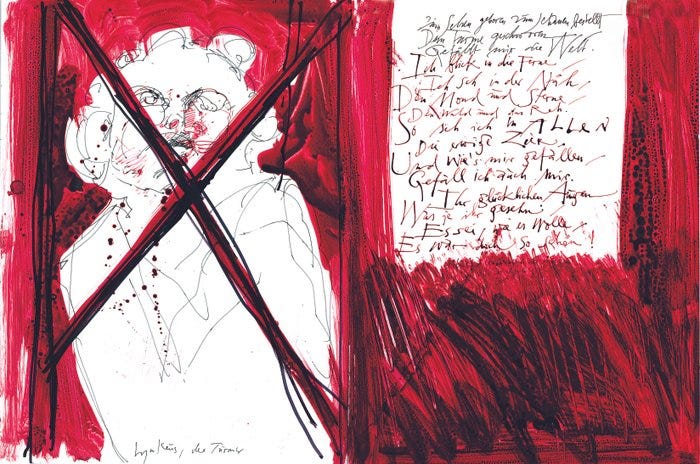 Lynkeus, der Türmer
Zum Sehen geboren zum Schauen bestellt
Dem Turme geschworen
Gefällt mir die Welt.
Ich blick in die Ferne
Ich seh in der Näh,
Den Mond und Sterne,
Den Wald und das Reh
So seh ich in ALLEN
Die ewige Zier,
Und wie's mir gefallen,
Gefall ich auch mir.
Ihr glücklichen Augen
Was je ihr gesehn
Es sei, wie es wolle,
Es war doch so schön!